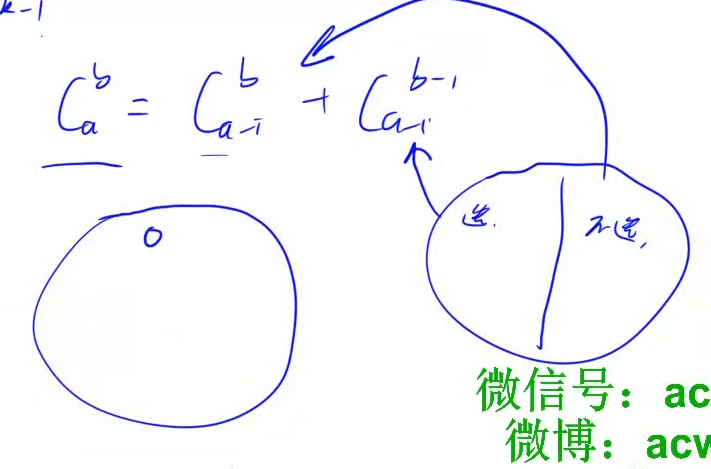 k-1
C_a^b = C_{a-1}^b + C_{a-1}^{b-1}
选. 不选,
O
微信号：ac
微博：acw